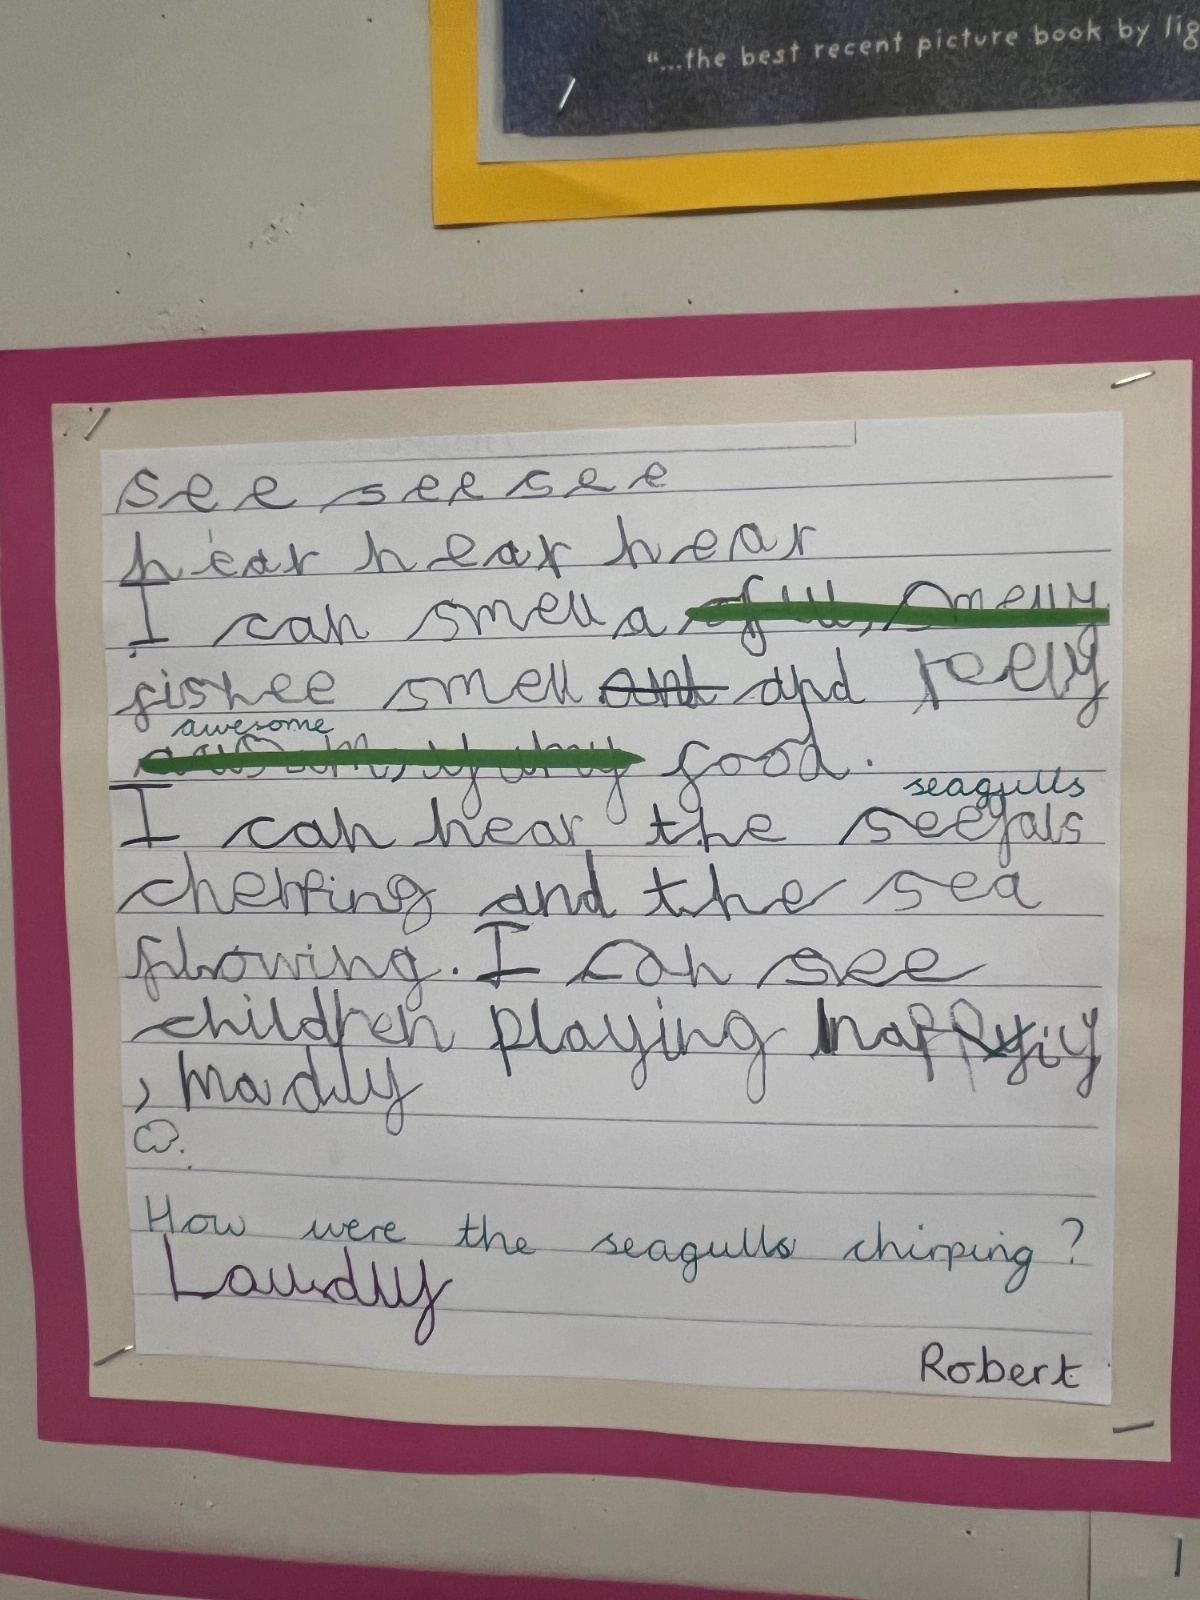 "...the best recent picture book by lig
see see see
hear hear hear
I can smell a afull, smelly
fishee smell and and reelly
awesome
good.
seagulls
I can hear the seegals
cherping and the sea
flowing. I can see
children playing happyily
, madly
How were the seagulls chirping?
Loudly
Robert